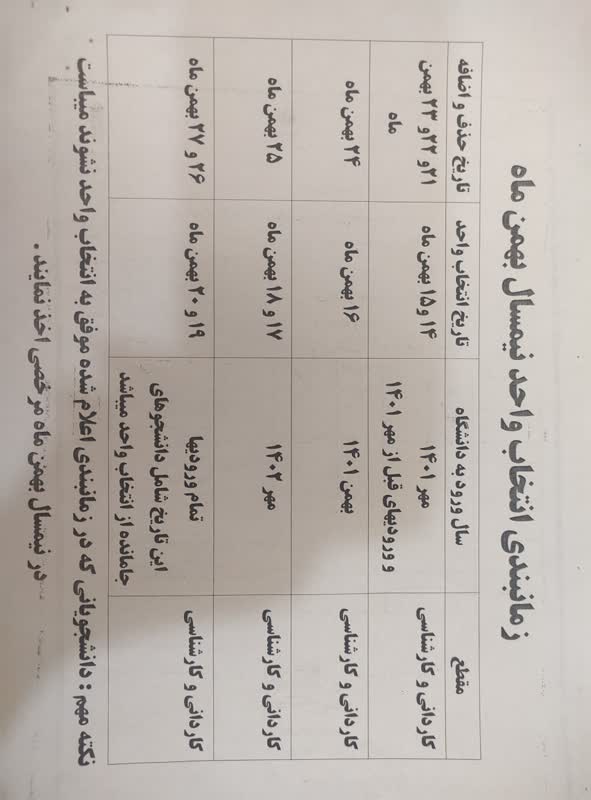 زمانبندی انتخاب واحد نیمسال بهمن ماه
مقطع	سال ورود به دانشگاه	تاریخ انتخاب واحد	تاریخ حذف و اضافه
کاردانی و کارشناسی	مهر ۱۴۰۱	۱۴ و ۱۵ بهمن ماه	۲۱ و ۲۲ و ۲۳ بهمن
و ورودیهای قبل از مهر ۱۴۰۱	ماه
کاردانی و کارشناسی	بهمن ۱۴۰۱	۱۶ بهمن ماه	۲۴ بهمن ماه
کاردانی و کارشناسی	مهر ۱۴۰۲	۱۷ و ۱۸ بهمن ماه	۲۵ بهمن ماه
کاردانی و کارشناسی	تمام ورودیها	۱۹ و ۲۰ بهمن ماه	۲۶ و ۲۷ بهمن ماه
این تاریخ شامل دانشجوهای
جامانده از انتخاب واحد میباشد
نکته مهم : دانشجویانی که در زمانبندی اعلام شده موفق به انتخاب واحد نشوند میباست
در نیمسال بهمن ماه مرخصی اخذ نمایند .